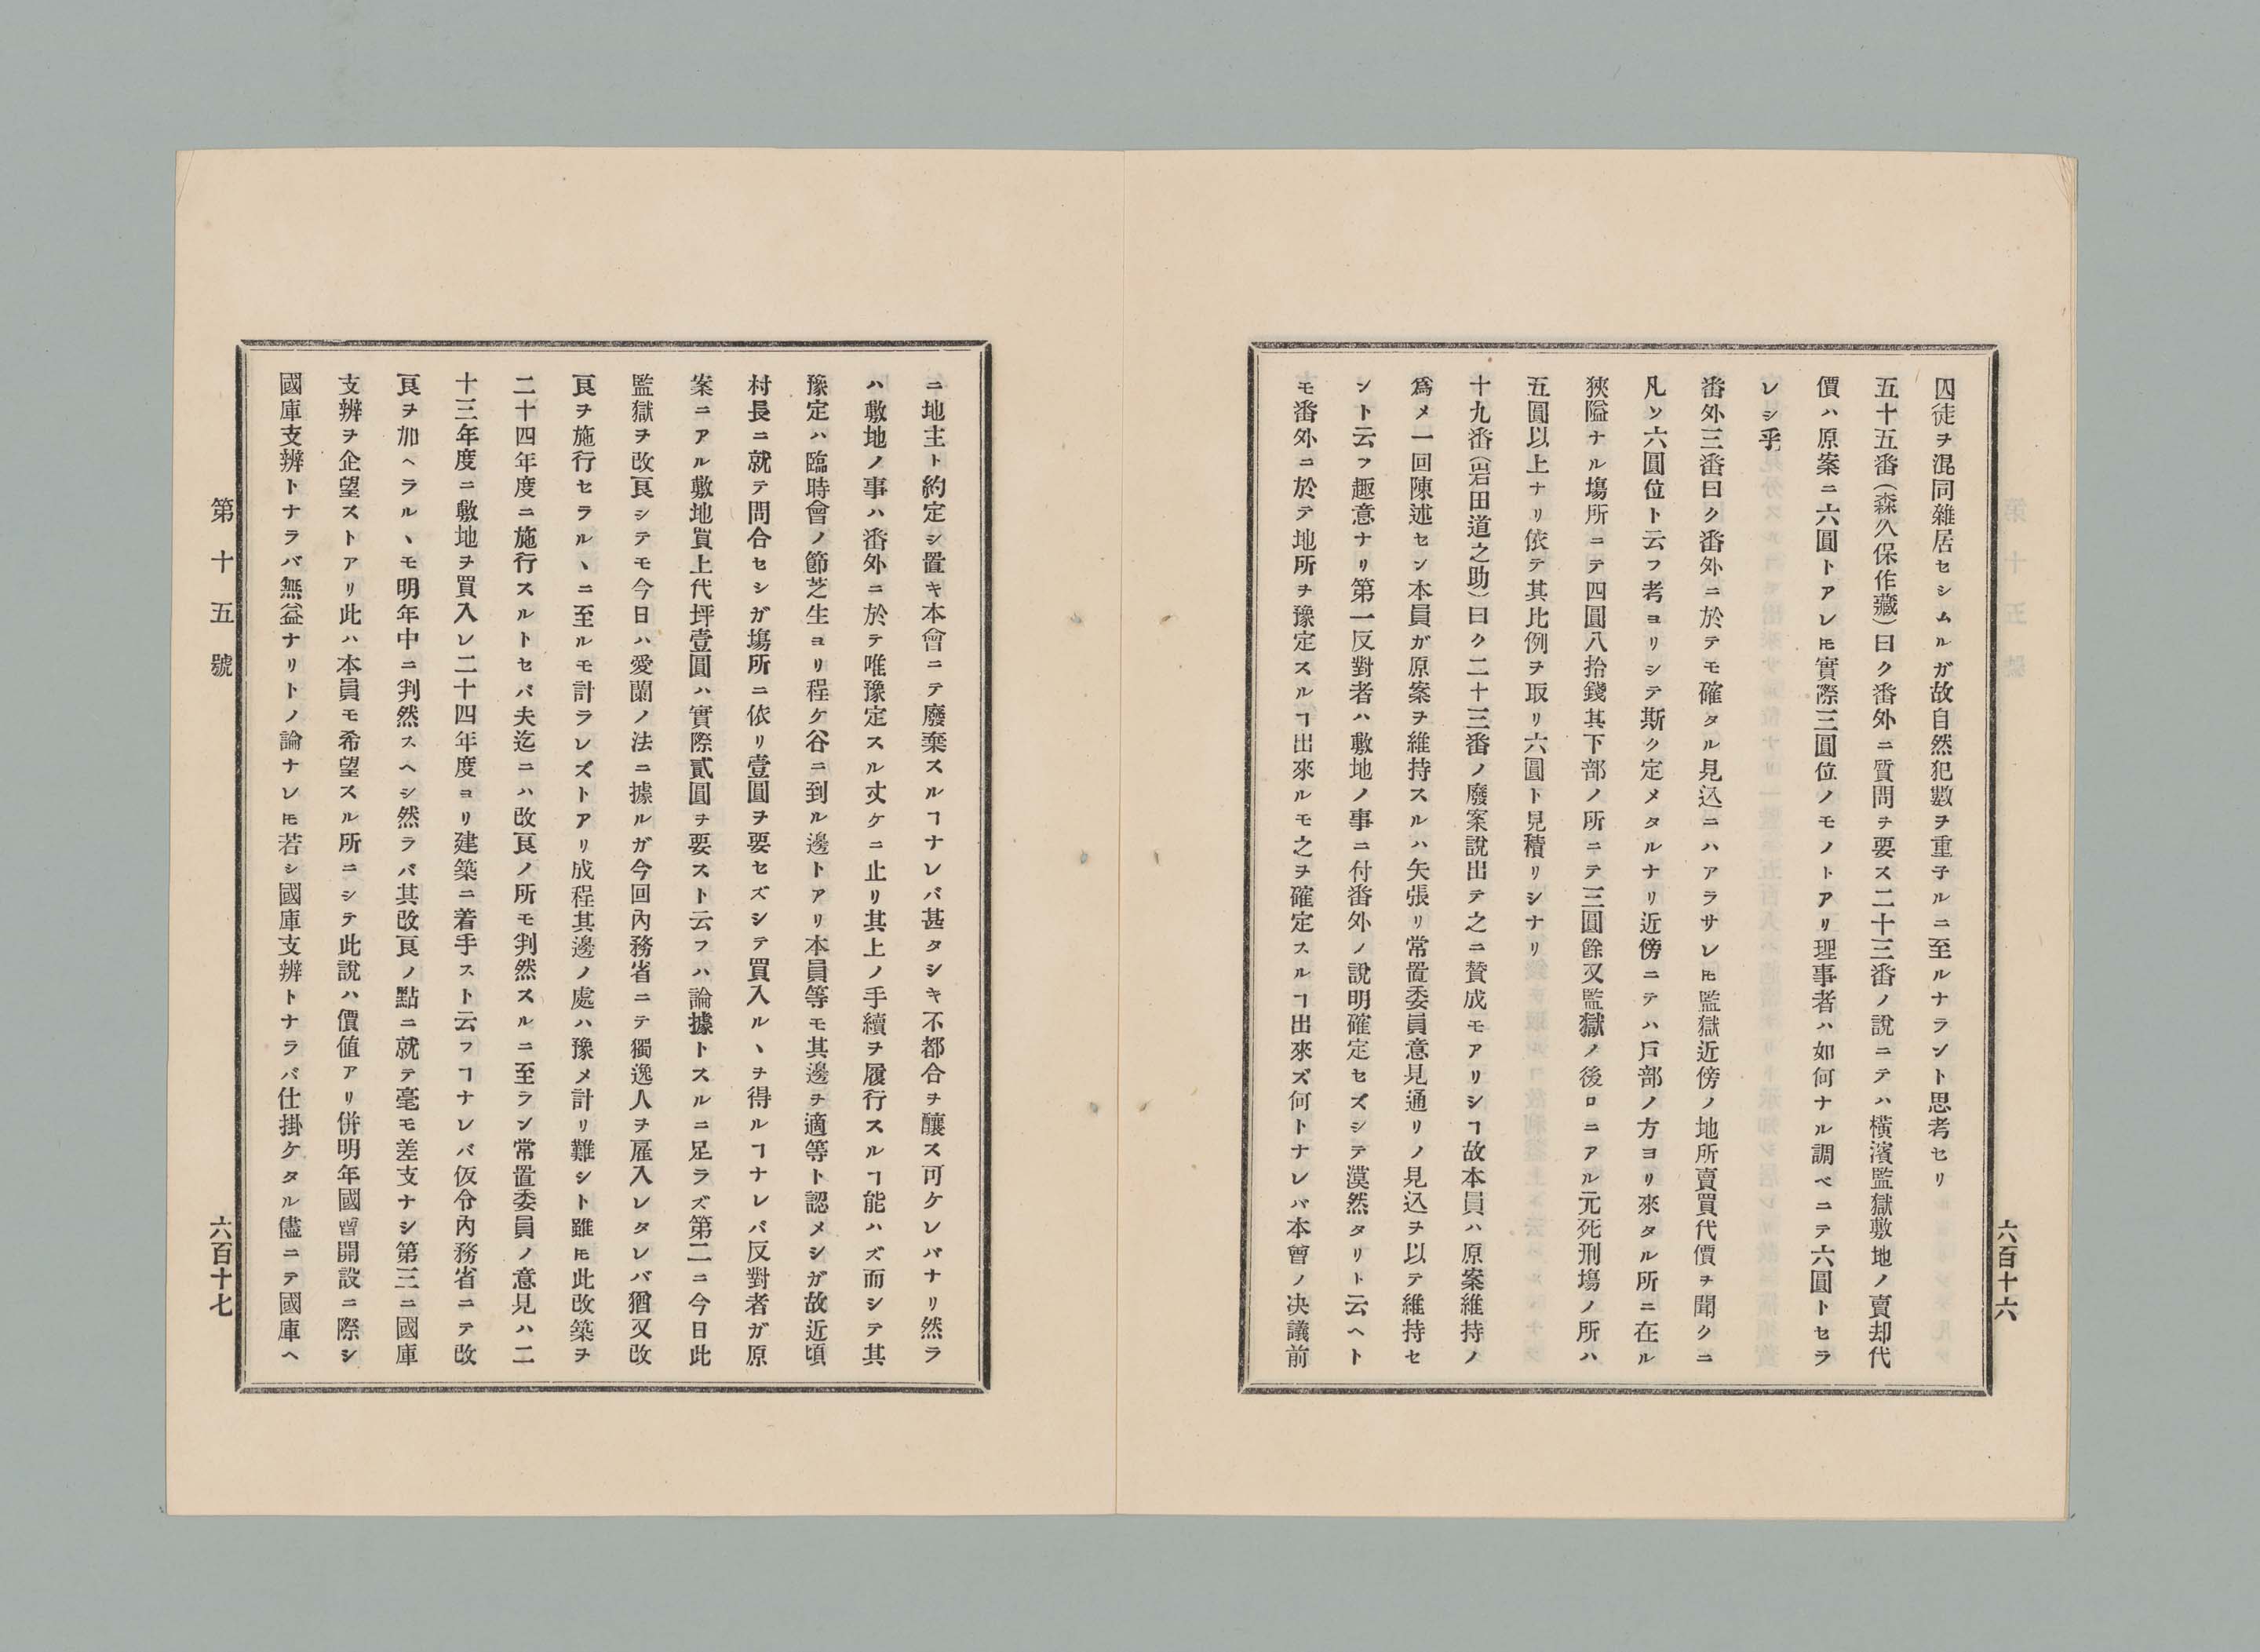 六百十六
囚徒ヲ混同雜居セシムルガ故自然犯數ヲ重子ルニ至ルナラント思考セリ
五十五番（森久保作藏）曰ク番外ニ質問ヲ要ス二十三番ノ說ニテハ橫濱監獄敷地ノ賣却代
價ハ原案ニ六圓トアレ𪜈實際三圓位ノモノトアリ理事者ハ如何ナル調ベニテ六圓トセラ
レシ乎
番外三番曰ク番外ニ於テモ確タル見込ニハアラサレ𪜈監獄近傍ノ地所賣買代價ヲ聞クニ
凡ソ六圓位ト云フ考ヨリシテ斯ク定メタルナリ近傍ニテハ戶部ノ方ヨリ來タル所ニ在ル
狹隘ナル塲所ニテ四圓八拾錢其下部ノ所ニテ三圓餘又監獄ノ後ロニアル元死刑塲ノ所ハ
五圓以上ナリ依テ其比例ヲ取リ六圓ト見積リシナリ
十九番（岩田道之助）曰ク二十三番ノ廢案說出テ之ニ賛成モアリシヿ故本員ハ原案維持ノ
爲メ一回陳述セン本員ガ原案ヲ維持スルハ矢張リ常置委員意見通リノ見込ヲ以テ維持セ
ント云フ趣意ナリ第一反對者ハ敷地ノ事ニ付番外ノ說明確定セズシテ漠然タリト云ヘト
モ番外ニ於テ地所ヲ豫定スルヿ出來ルモ之ヲ確定スルヿ出來ズ何トナレバ本會ノ决議前
ニ地主ト約定シ置キ本會ニテ廢棄スルヿナレバ甚タシキ不都合ヲ釀ス可ケレバナリ然ラ
ハ敷地ノ事ハ番外ニ於テ唯豫定スル丈ケニ止リ其上ノ手續ヲ履行スルヿ能ハズ而シテ其
豫定ハ臨時會ノ節芝生ヨリ程ケ谷ニ到ル邊トアリ本員等モ其邊ヲ適等ト認メシガ故近頃
村長ニ就テ問合セシガ塲所ニ依リ壹圓ヲ要セズシテ買入ルヽヲ得ルヿナレバ反對者ガ原
案ニアル敷地買上代坪壹圓ハ實際貳圓ヲ要スト云フハ論據トスルニ足ラズ第二ニ今日此
監獄ヲ改良シテモ今日ハ愛蘭ノ法ニ據ルガ今回內務省ニテ獨逸人ヲ雇入レタレバ猶又改
良ヲ施行セラルヽニ至ルモ計ラレズトアリ成程其邊ノ處ハ豫メ計リ難シト雖𪜈此改築ヲ
二十四年度ニ施行スルトセバ夫迄ニハ改良ノ所モ判然スルニ至ラン常置委員ノ意見ハ二
十三年度ニ敷地ヲ買入レ二十四年度ヨリ建築ニ着手スト云フヿナレバ仮令內務省ニテ改
良ヲ加ヘラルヽモ明年中ニ判然スヘシ然ラバ其改良ノ點ニ就テ毫モ差支ナシ第三ニ國庫
支辨ヲ企望ストアリ此ハ本員モ希望スル所ニシテ此說ハ價値アリ併明年國會開設ニ際シ
國庫支辨トナラバ無益ナリトノ論ナレ𪜈若シ國庫支辨トナラバ仕掛ケタル儘ニテ國庫ヘ
第十五號
六百十七